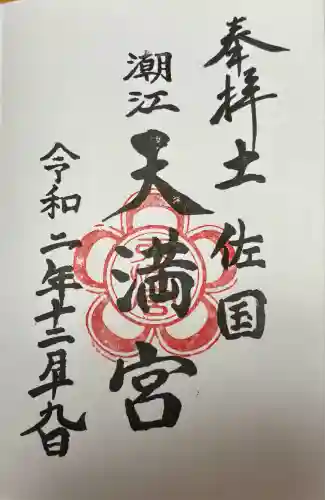 奉拝 土佐国
潮江天満宮
令和二年十二月九日